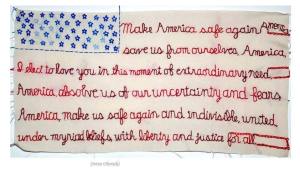 Make America safe again America,
save us from ourselves, America,
I elect to love you in this moment of extraordinary need,
America, absolve us of our uncertainty and fears
America, make us safe again and indivisible, united
under myriad beliefs, with liberty and justice for all